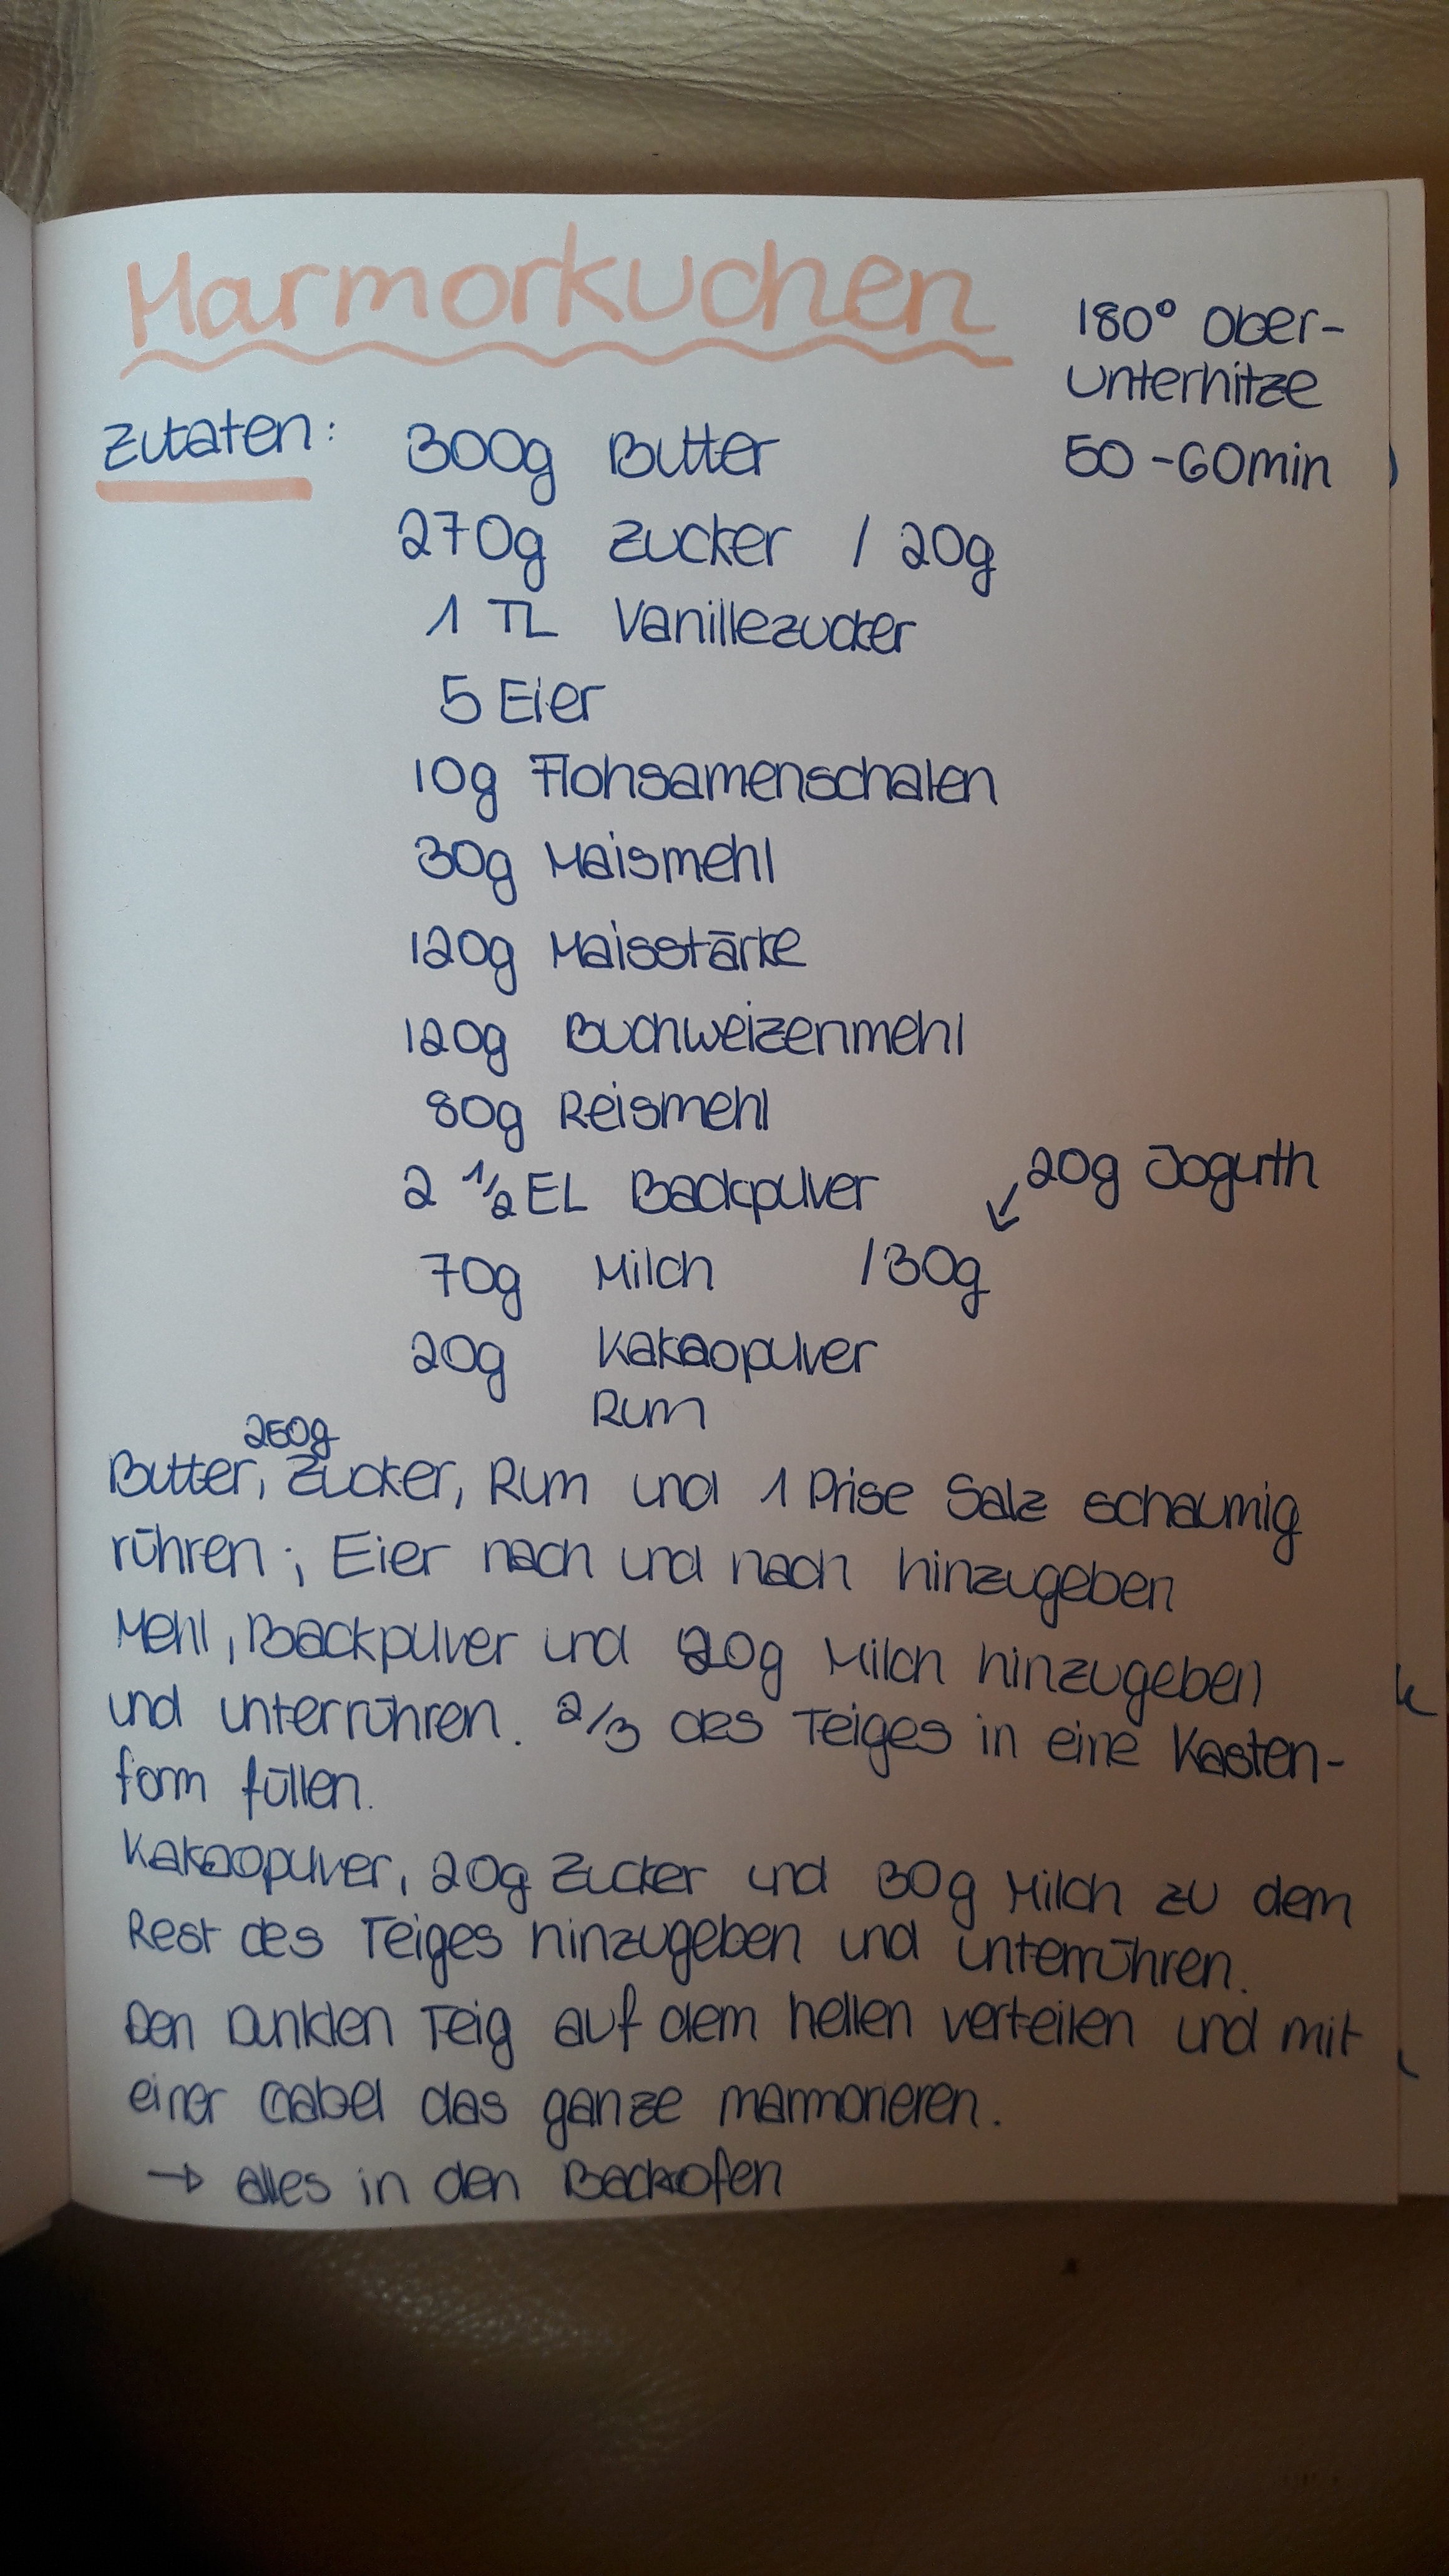 Marmorkuchen
180° Ober-
unterhitze
50-60min
Zutaten:
300g Butter
270g Zucker / 20g
1 TL Vanillezucker
5 Eier
10g Flohsamenschalen
30g Maismehl
120g Maisstärke
120g Buchweizenmehl
80g Reismehl
2 1/2 EL Backpulver
20g Jogurth
70g Milch /30g
20g Kakaopulver
Rum
250g
Butter, Zucker, Rum und 1 Prise Salz schaumig
rühren; Eier nach und nach hinzugeben
Mehl, Backpulver und 20g Milch hinzugeben
und unterrühren. 2/3 des Teiges in eine Kasten-
form füllen.
Kakaopulver, 20g Zucker und 30g Milch zu dem
Rest des Teiges hinzugeben und unterrühren.
Den Dunklen Teig auf dem hellen verteilen und mit
einer Gabel das ganze marmorieren.
→ alles in den Backofen